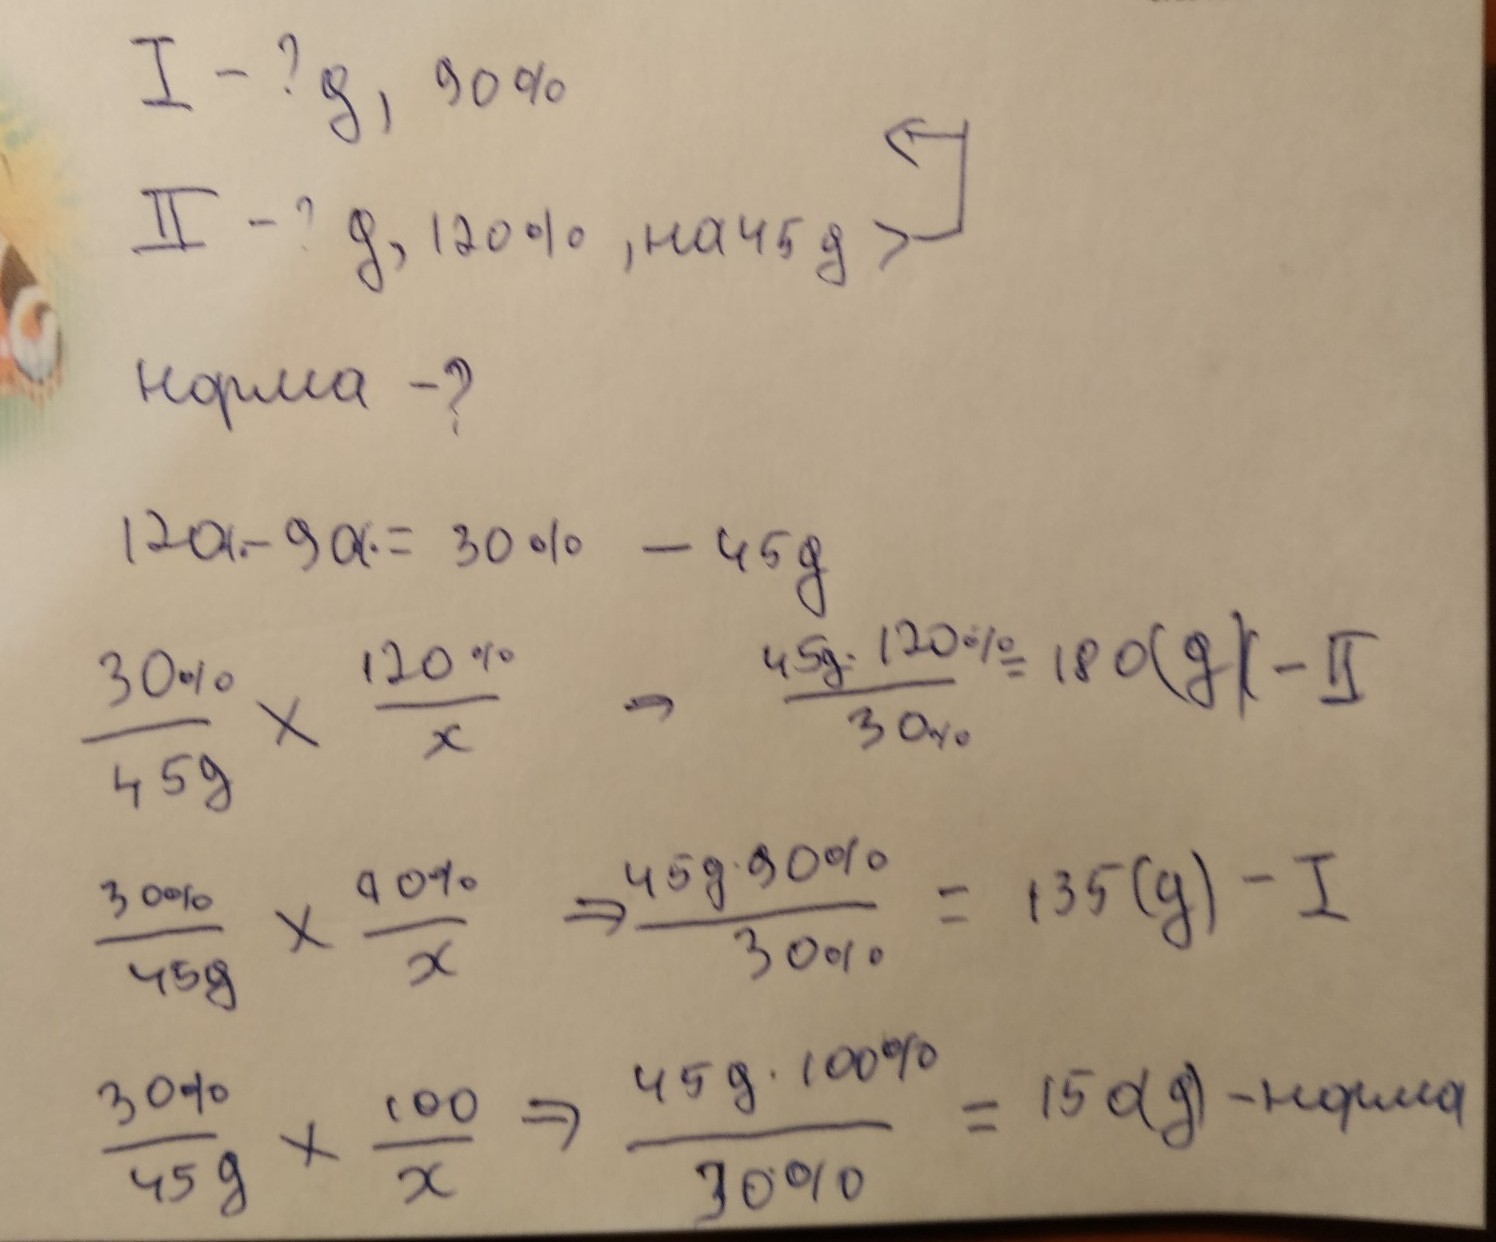 I - ? д, 90%
II - ? д, 120%, на 45 д >
норма - ?
120 - 90 = 30% - 45 д
30% / 45 д × 120% / x → 45 д · 120% / 30% = 180 (д) - II
30% / 45 д × 90% / x ⇒ 45 д · 90% / 30% = 135 (д) - I
30% / 45 д × 100 / x ⇒ 45 д · 100% / 30% = 150 (д) - норма